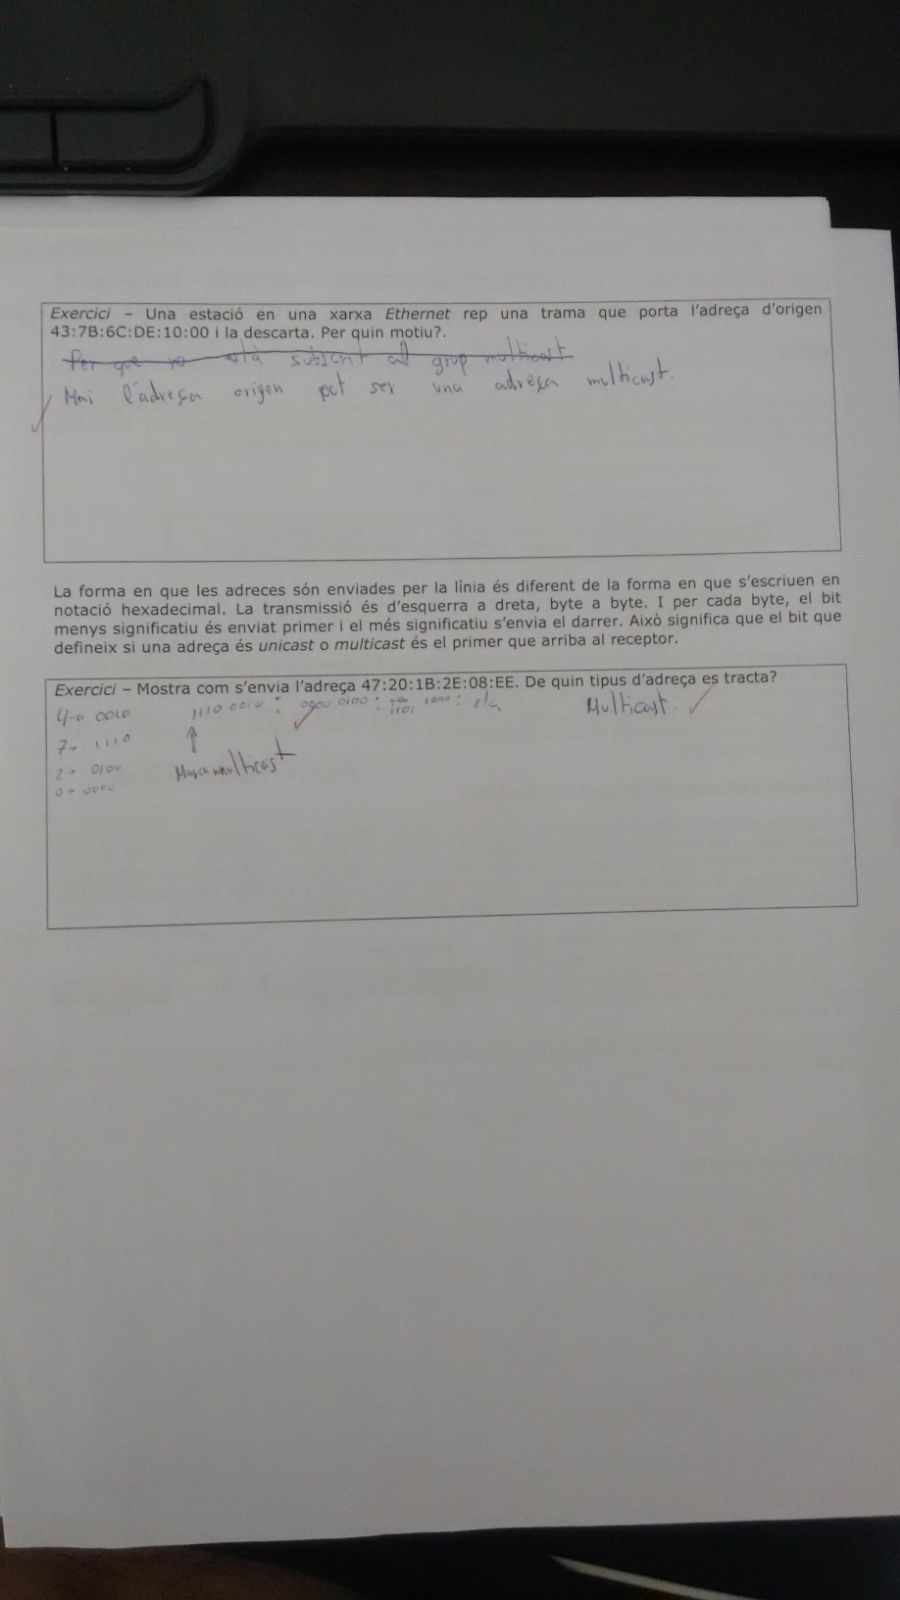 Exercici – Una estació en una xarxa Ethernet rep una trama que porta l'adreça d'origen
43:7B:6C:DE:10:00 i la descarta. Per quin motiu?.
Per que no està subscrit al grup multicast
Mai l'adreça origen pot ser una adreça multicast.
La forma en que les adreces són enviades per la línia és diferent de la forma en que s'escriuen en
notació hexadecimal. La transmissió és d'esquerra a dreta, byte a byte. I per cada byte, el bit
menys significatiu és enviat primer i el més significatiu s'envia el darrer. Això significa que el bit que
defineix si una adreça és unicast o multicast és el primer que arriba al receptor.
Exercici – Mostra com s'envia l'adreça 47:20:1B:2E:08:EE. De quin tipus d'adreça es tracta?
4→ 0010 1110 0010 : 0000 0100 : 1101 1000 : etc. Multicast.
7→ 1110
2→ 0100 Marca multicast
0→ 0000